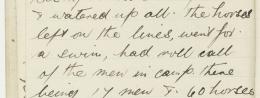 & watered up all. The horses
left on the lines, went for
a swim, had roll call
of the men in camp there
being 17 men & 60 horses